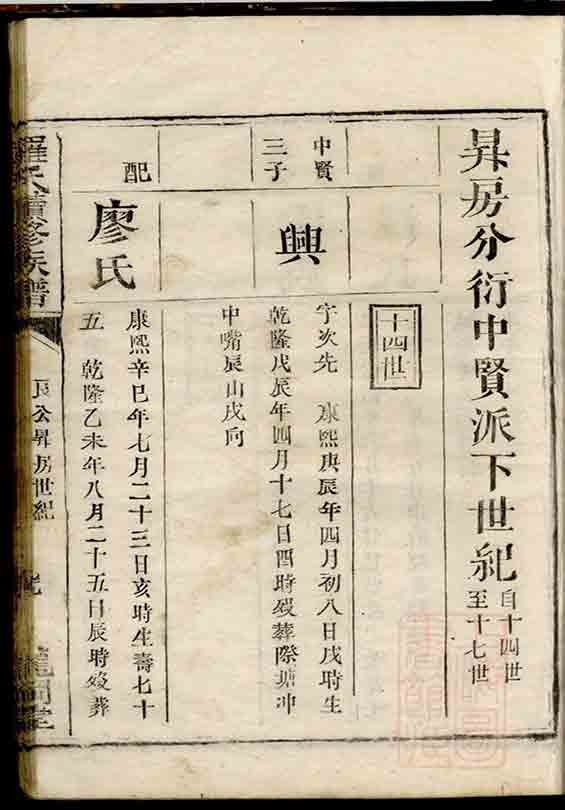 昇房分衍中賢派下世紀 自十四世至十七世
十四世
中賢三子
興
字次先 康熙庚辰年四月初八日戌時生
乾隆戊辰年四月十七日酉時歿葬際塘冲
中嘴辰山戌向
配
廖氏
康熙辛巳年七月二十三日亥時生壽七十
五 乾隆乙未年八月二十五日辰時歿葬
羅氏續修族譜
公昇房世紀